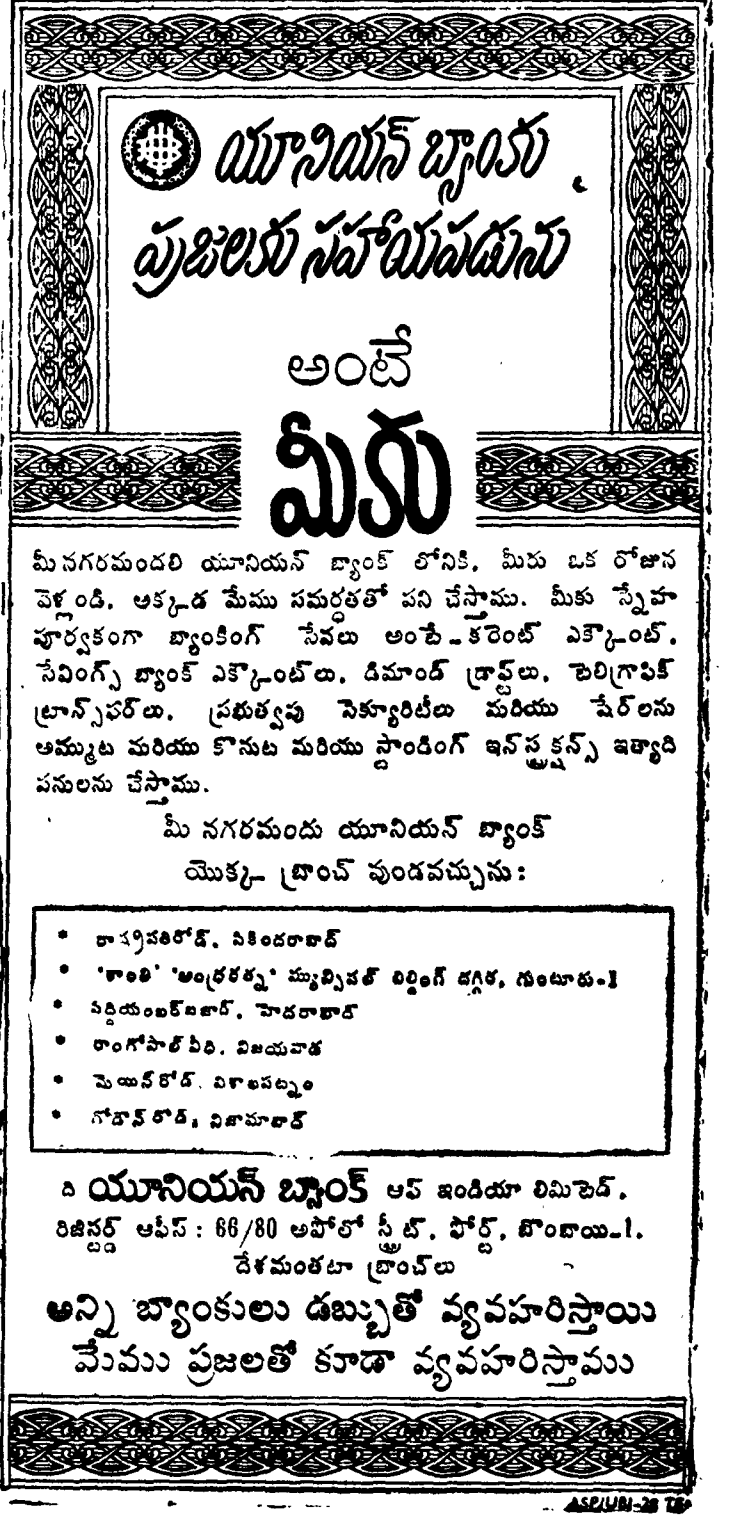 యూనియన్ బ్యాంకు
ప్రజలకు సహాయపడును
అంటే
మీకు
మీ నగరమందలి యూనియన్ బ్యాంక్ లోనికి, మీరు ఒక రోజున
వెళ్లండి. అక్కడ మేము సమర్ధతతో పని చేస్తాము. మీకు స్నేహ
పూర్వకంగా బ్యాంకింగ్ సేవలు అంటే - కరెంట్ ఎక్కౌంట్,
సేవింగ్స్ బ్యాంక్ ఎక్కౌంట్‌లు, డిమాండ్ డ్రాఫ్ట్‌లు, టెలిగ్రాఫిక్
ట్రాన్స్‌ఫర్‌లు, ప్రభుత్వపు సెక్యూరిటీలు మరియు షేర్‌లను
అమ్ముట మరియు కొనుట మరియు స్టాండింగ్ ఇన్‌స్ట్రక్షన్స్ ఇత్యాది
పనులను చేస్తాము.
మీ నగరమందు యూనియన్ బ్యాంక్
యొక్క బ్రాంచ్ వుండవచ్చును:
* రాష్ట్రపతిరోడ్, సికిందరాబాద్
* 'శాంతి' 'ఆంధ్రరత్న' మ్యునిసిపల్ బిల్డింగ్ దగ్గిర, గుంటూరు-1
* సిద్దియంబర్‌బజార్, హైదరాబాద్
* రాంగోపాల్ వీధి, విజయవాడ
* మెయిన్‌రోడ్, విశాఖపట్నం
* గోడౌన్ రోడ్, నిజామాబాద్
ది యూనియన్ బ్యాంక్ ఆఫ్ ఇండియా లిమిటెడ్,
రిజిస్టర్డ్ ఆఫీస్ : 66/80 అపోలో స్ట్రీట్, ఫోర్ట్, బొంబాయి-1.
దేశమంతటా బ్రాంచ్‌లు
అన్ని బ్యాంకులు డబ్బుతో వ్యవహరిస్తాయి
మేము ప్రజలతో కూడా వ్యవహరిస్తాము
ASP/UBI-28 TEA